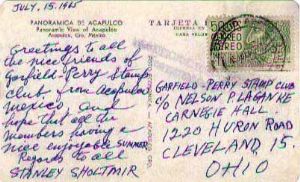 JULY. 15. 1965
PANORAMICA DE ACAPULCO
Panoramic View of Acapulco
Acapulco, Gro. Mexico
TARJETA
Greetings to all
the nice friends of
Garfield-Perry Stamp
Club from Acapulco
Mexico, and
hope that all the
members having a
nice enjoyable summer
Regards to all
STANLEY SHOLTMIR
GARFIELD-PERRY STAMP CLUB
c/o NELSON P. LAGANKE
CARNEGIE HALL
1220 HURON ROAD
CLEVELAND 15.
OHIO